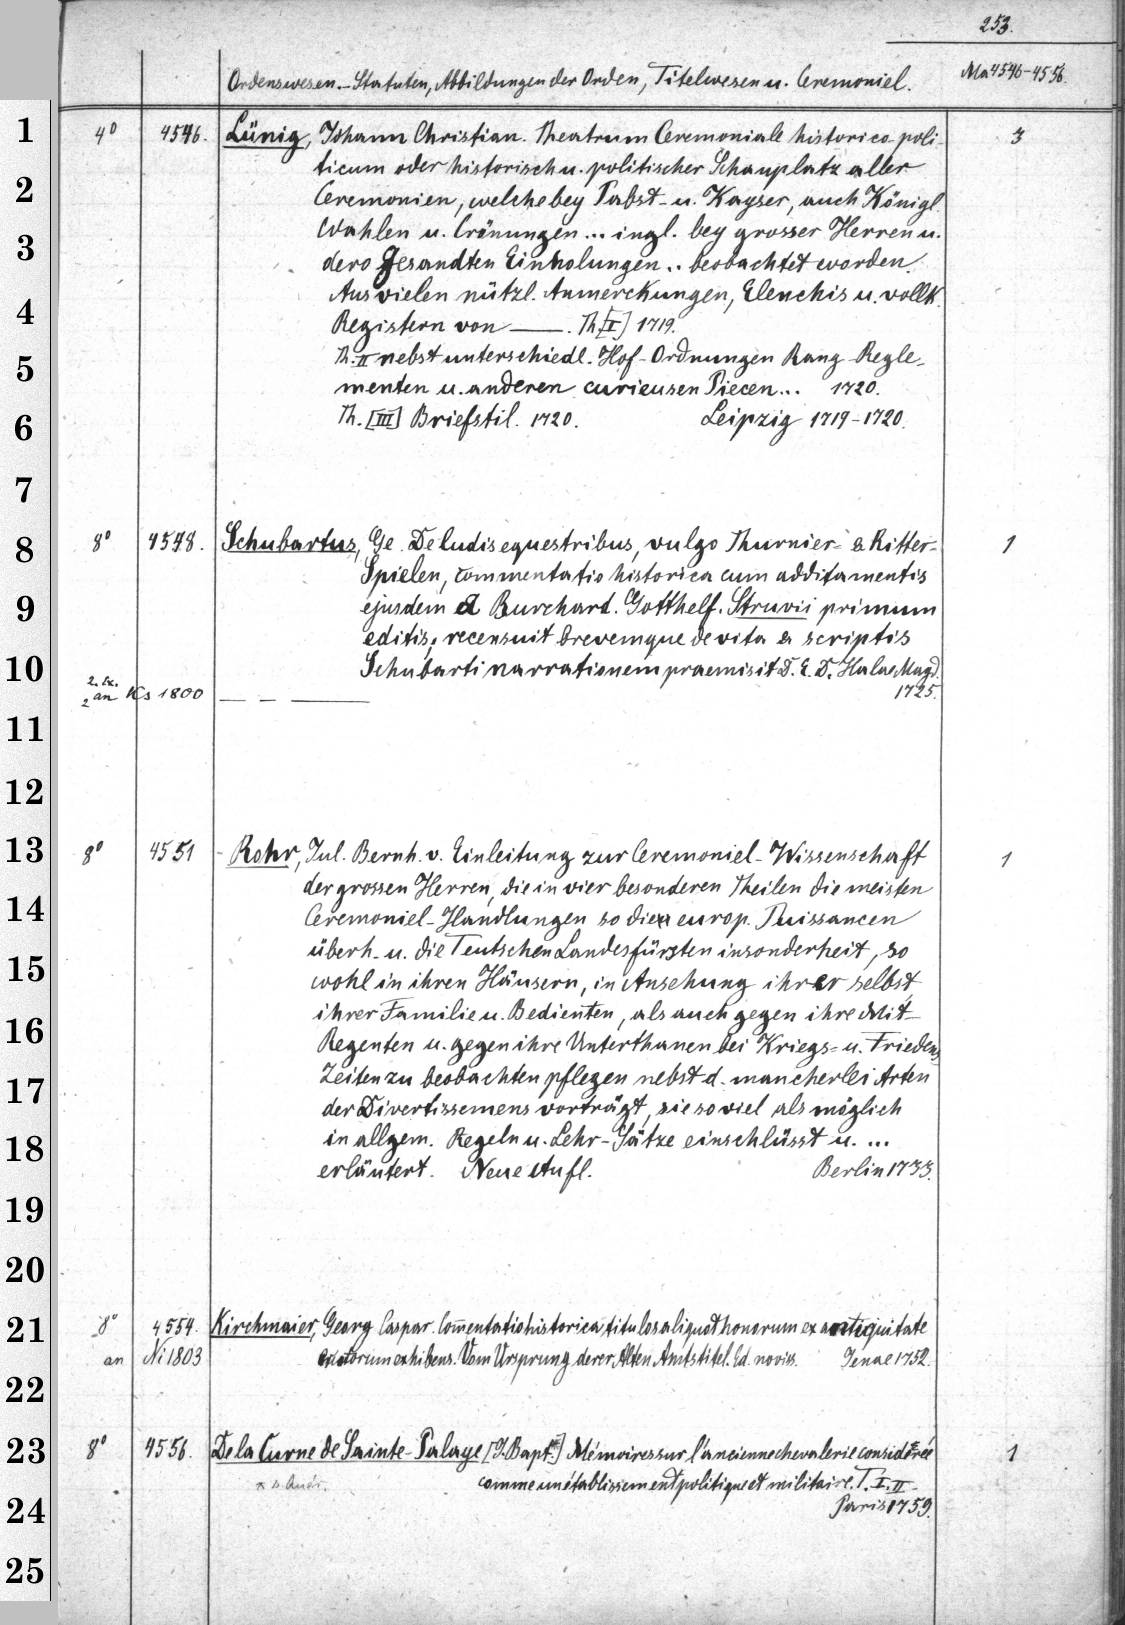 253.
Ordenswesen.-Statuten, Abbildungen der Orden, Titelwesen u. Ceremoniel. Ma 4546-4556.
1 4° 4546. Lünig, Johann Christian. Theatrum Ceremoniale historico-poli- 3
ticum oder historisch u. politischer Schauplatz aller
2 Ceremonien, welche bey Pabst- u. Kayser, auch Königl.
3 Wahlen u. Crönungen... ingl. bey grosser Herren u.
dero Gesandten Einholungen.. beobachtet worden.
Aus vielen nützl. Anmerckungen, Elenchis u. vollk.
4 Registern von ___. Th. [I] 1719.
5 Th. II nebst unterschiedl. Hof-Ordnungen Rang-Regle-
menten u. anderen curieusen Piecen... 1720.
6 Th. [III] Briefstil. 1720. Leipzig 1719-1720.
7
8 8° 4548. Schubartus, Ge. De ludis equestribus, vulgo Thurnier- & Ritter- 1
Spielen, commentatio historica cum additamentis
9 ejusdem et Burchard. Gotthelf. Struvii primum
editis, recensuit brevemque de vita & scriptis
10 Schubarti narrationem praemisit D. E. D. Halae Magd.
2. Ex. 2 an Ks 1800 _ _ ___ 1725.
11
12
13 8° 4551 - Rohr, Jul. Bernh. v. Einleitung zur Ceremoniel-Wissenschaft 1
der grossen Herren, die in vier besonderen Theilen die meisten
14 Ceremoniel-Handlungen so die europ. Puissancen
15 überh. u. die Teutschen Landesfürsten insonderheit, so
wohl in ihren Häusern, in Ansehung ihrer selbst
16 ihrer Familie u. Bedienten, als auch gegen ihre Mit-
Regenten u. gegen ihre Unterthanen bei Kriegs- u. Friedens
17 Zeiten zu beobachten pflegen nebst d. mancherlei Arten
der Divertissemens vorträgt, sie so viel als möglich
18 in allgem. Regeln u. Lehr-Sätze einschlüsst u. ...
erläutert. Neue Aufl. Berlin 1733.
19
20
21 8° 4554. Kirchmaier, Georg Caspar. Com̄entatio historica, titulos aliquot honorum ex antiquitate
an Ni 1803 exhibens. Vom Ursprung derer Alten Amtstitel. Ed. noviss. Jenae 1752.
22
23 8° 4556. De la Curne de Sainte-Palaye [J. Bapt.] Mémoires sur l'ancienne chevalerie considérée 1
comme un établissement politique et militaire. T. I. II.
24 Paris 1759.
25